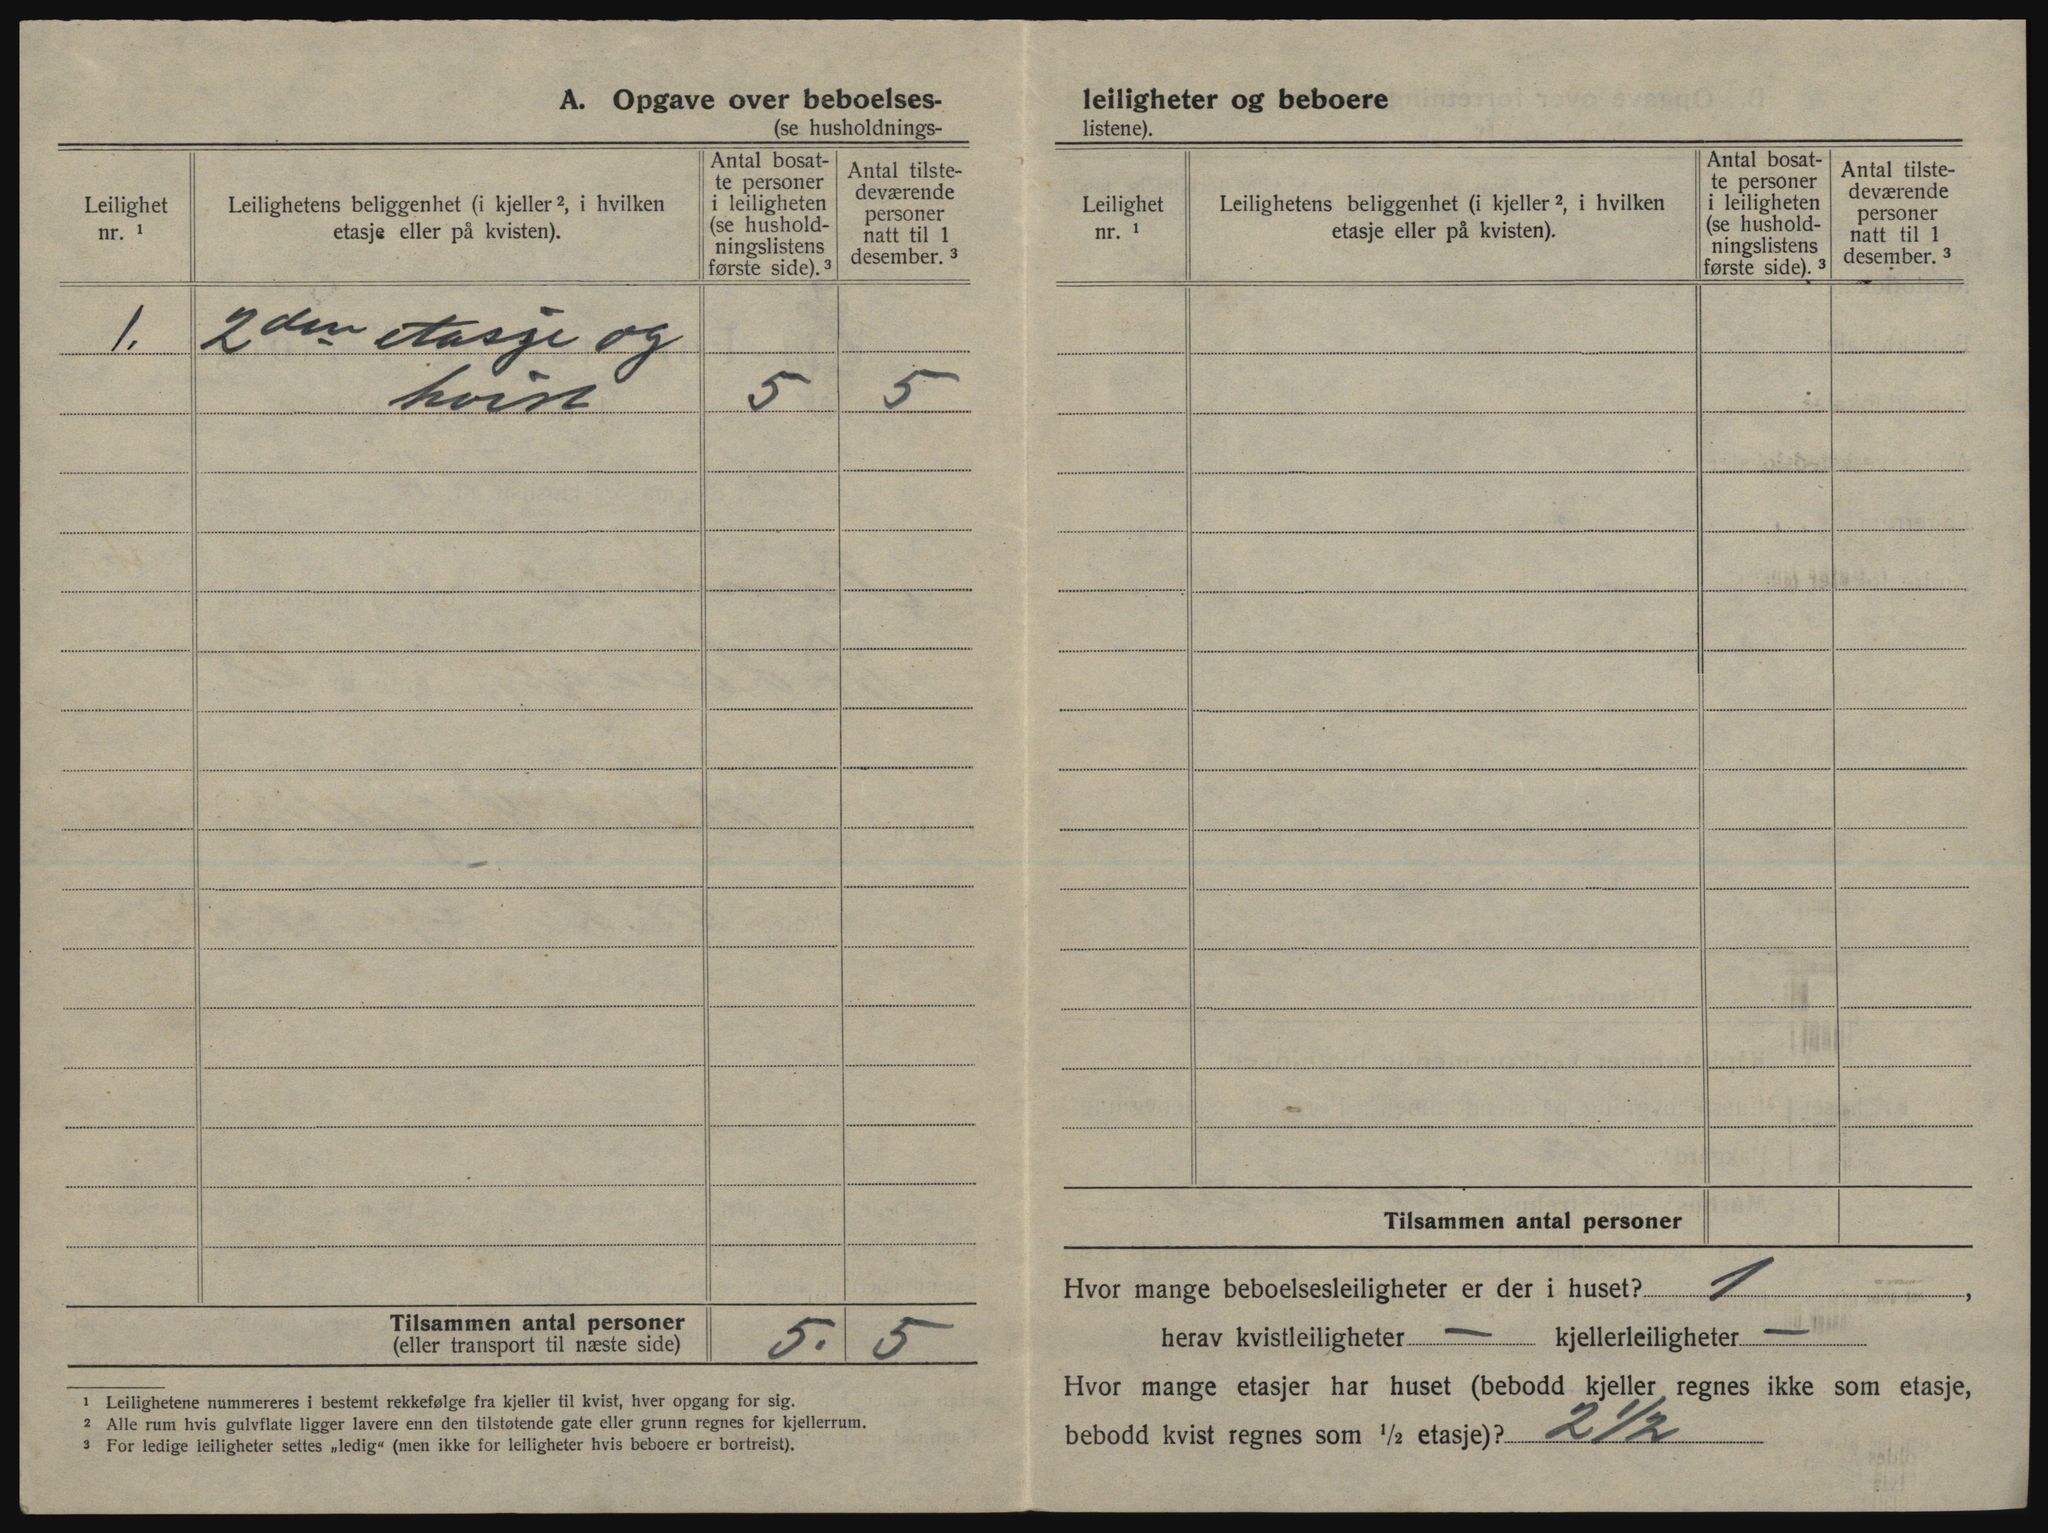 A. Opgave over beboelses-
(se husholdnings-
Leilighet
nr. ¹
Leilighetens beliggenhet (i kjeller ², i hvilken
etasje eller på kvisten).
Antal bosat-
te personer
i leiligheten
(se hushold-
ningslistens
første side). ³
Antal tilste-
deværende
personer
natt til 1
desember. ³
1. 2den etasje og
kvist 5 5
Tilsammen antal personer 5. 5
(eller transport til næste side)
¹ Leilighetene nummereres i bestemt rekkefølge fra kjeller til kvist, hver opgang for sig.
² Alle rum hvis gulvflate ligger lavere enn den tilstøtende gate eller grunn regnes for kjellerrum.
³ For ledige leiligheter settes „ledig“ (men ikke for leiligheter hvis beboere er bortreist).
leiligheter og beboere
listene).
Leilighet
nr. ¹
Leilighetens beliggenhet (i kjeller ², i hvilken
etasje eller på kvisten).
Antal bosat-
te personer
i leiligheten
(se hushold-
ningslistens
første side). ³
Antal tilste-
deværende
personer
natt til 1
desember. ³
Tilsammen antal personer
Hvor mange beboelsesleiligheter er der i huset? 1,
herav kvistleiligheter — kjellerleiligheter —
Hvor mange etasjer har huset (bebodd kjeller regnes ikke som etasje,
bebodd kvist regnes som ½ etasje)? 2 ½